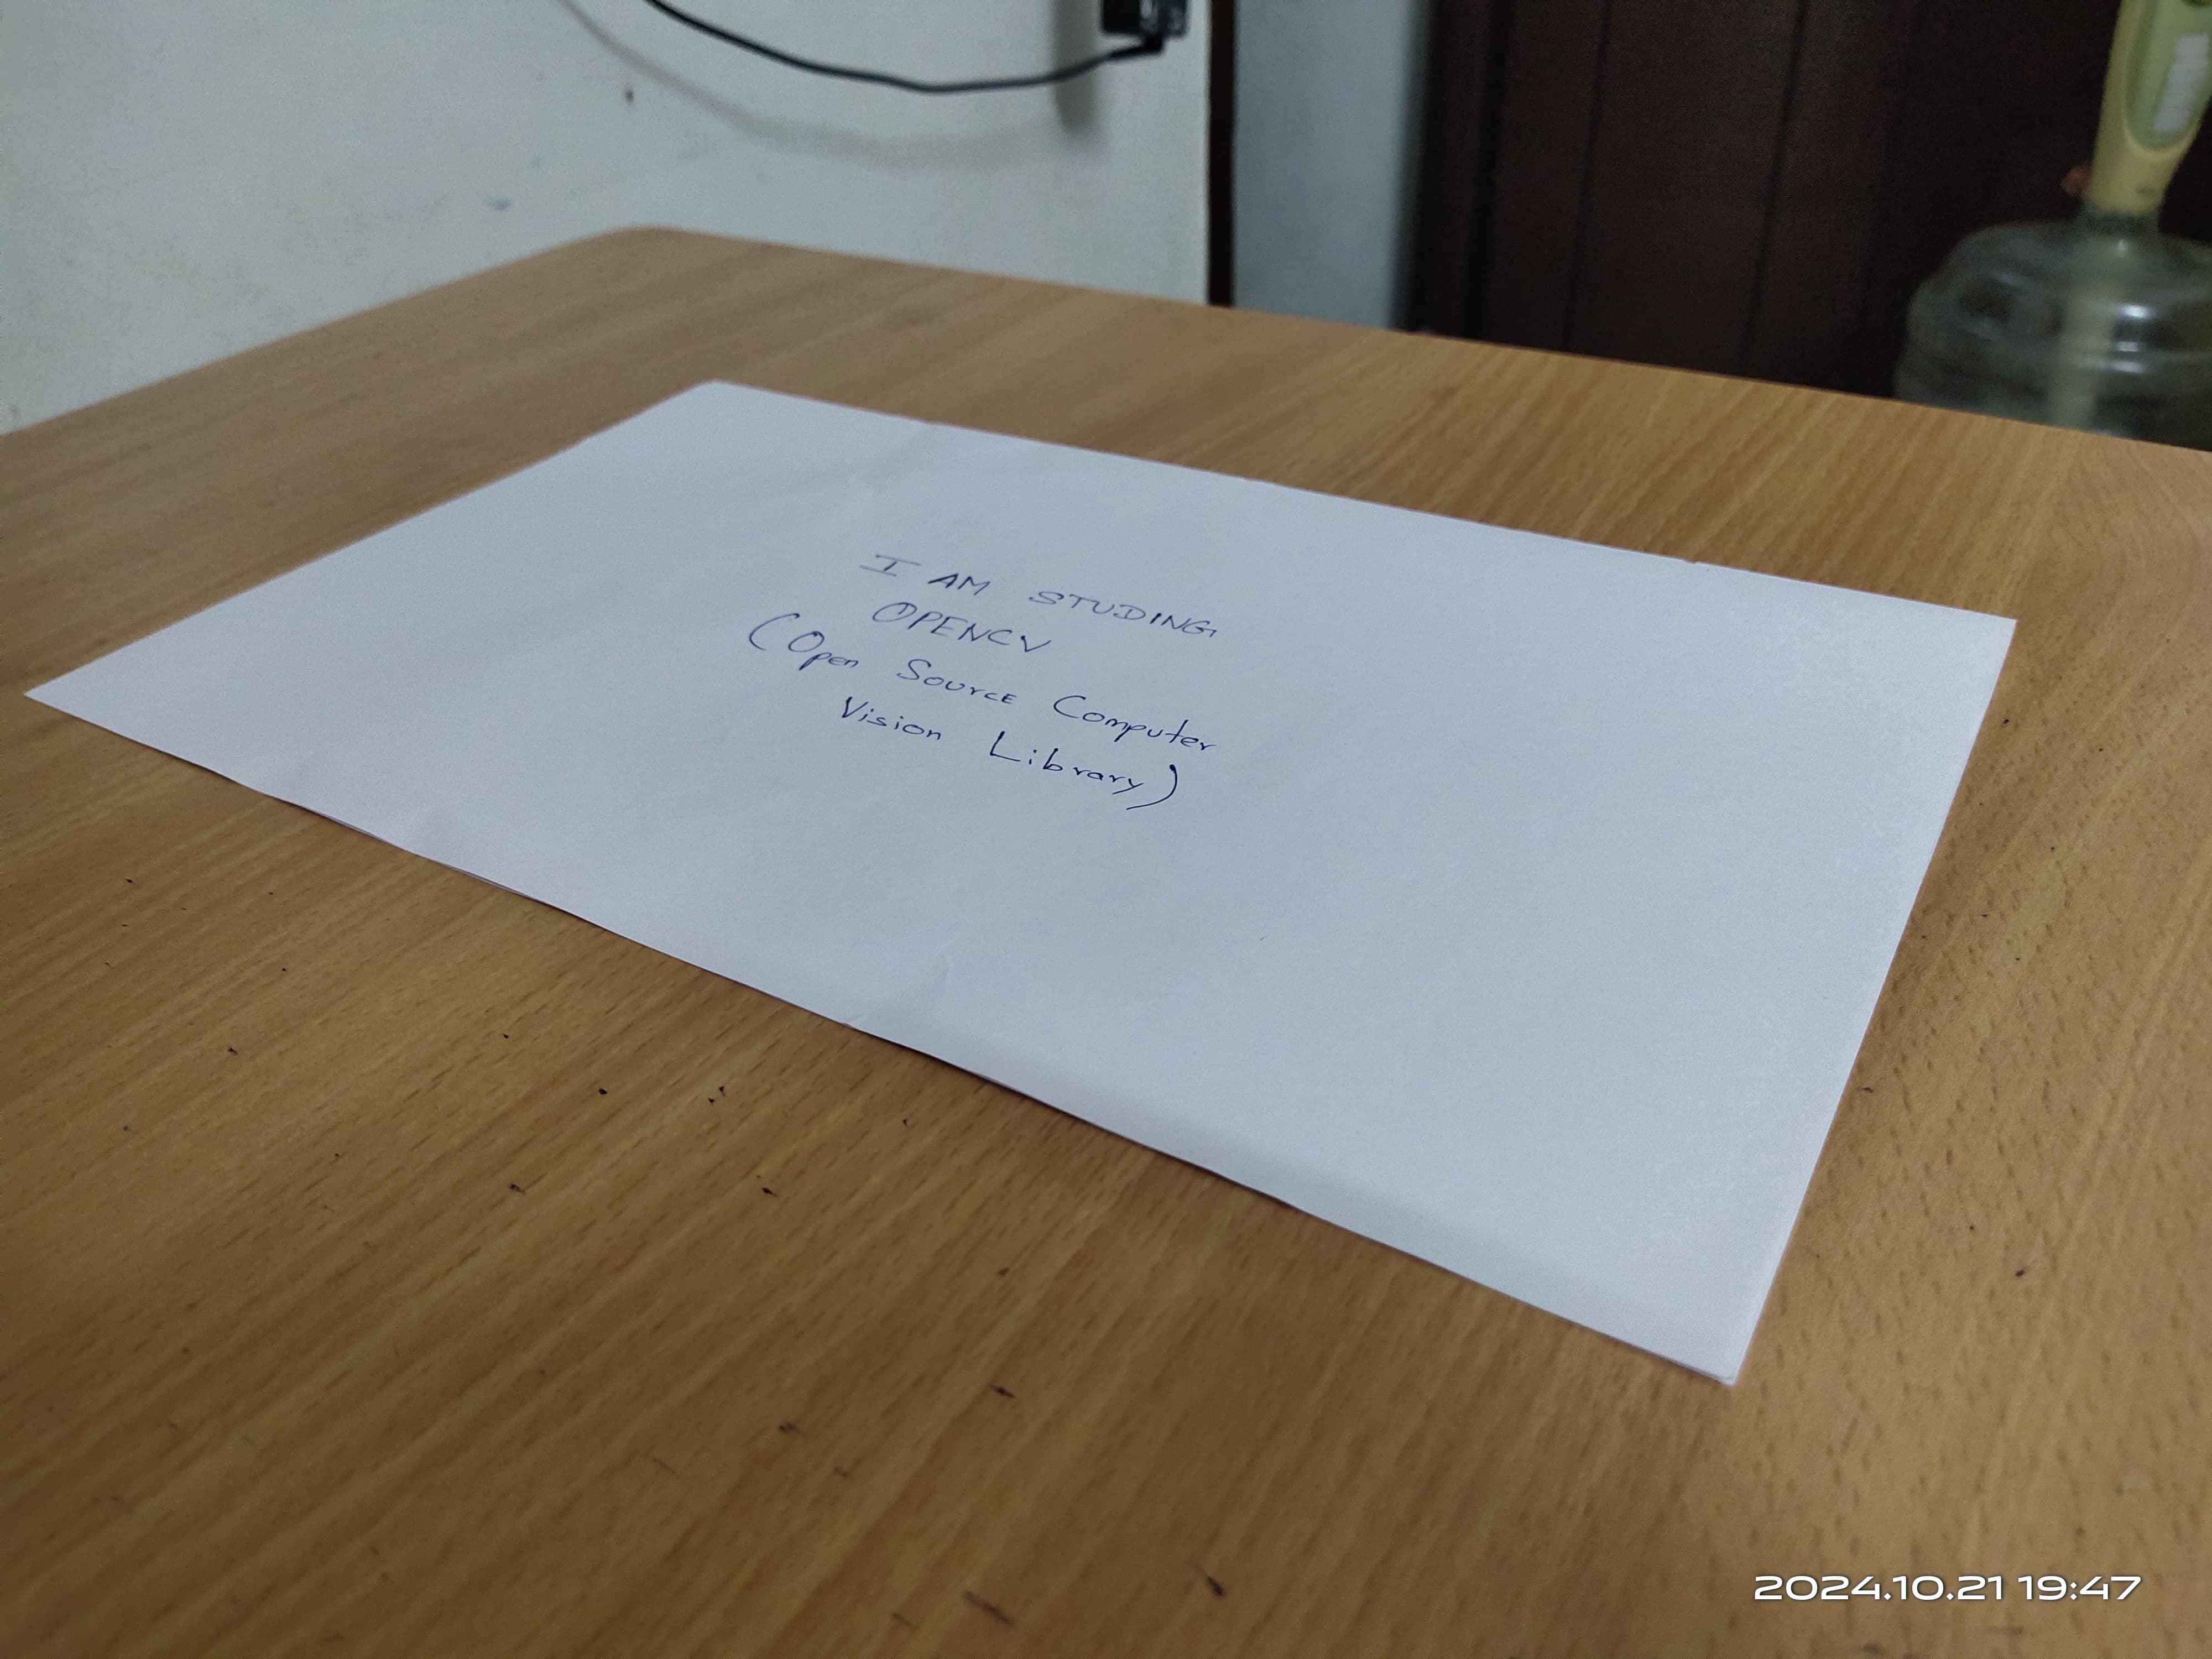 I AM STUDING
OPENCV
(Open Source Computer
Vision Library)
2024.10.21 19:47